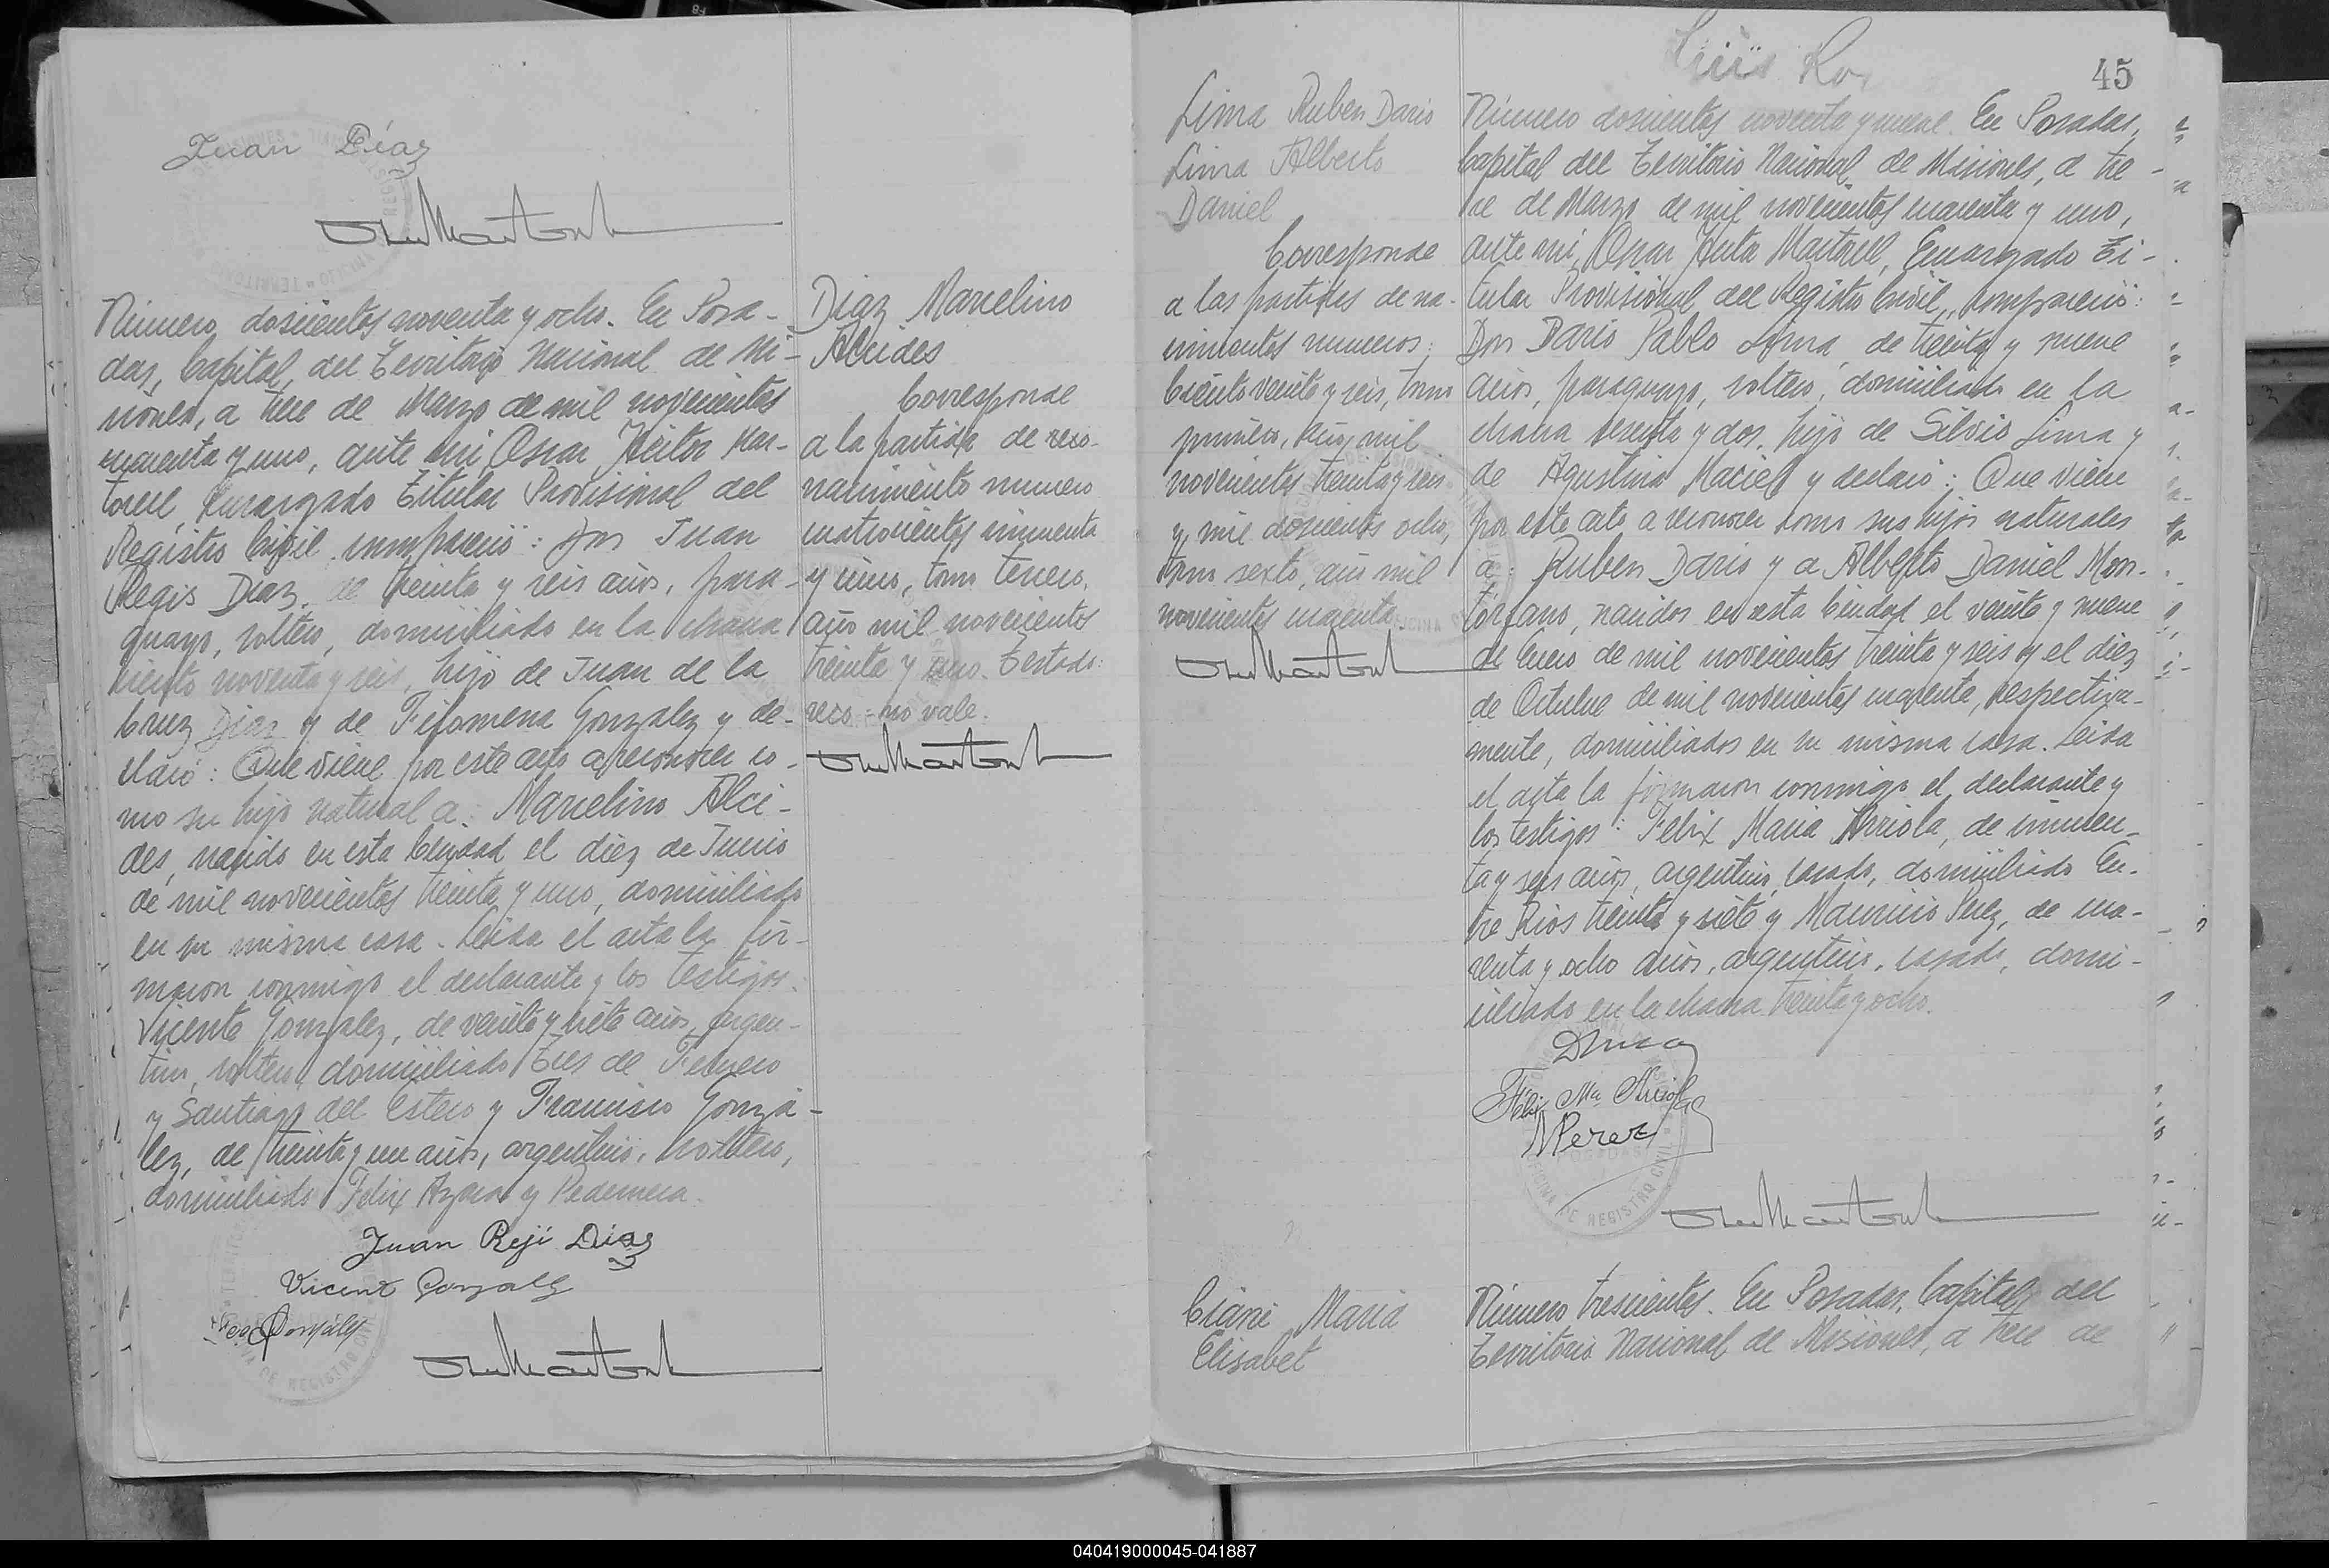 Juan Díaz
Número doscientos noventa y ocho. En Posa-
das, Capital, del Territorio Nacional de Mi-
siones, a trece de Marzo de mil novecientos
cuarenta y uno, ante mi Oscar Héctor Mar-
torell, Encargado Titular Provisional del
Registro Civil, compareció: Don Juan
Regis Díaz, de treinta y seis años, para-
guayo, soltero, domiciliado en la chacra
ciento noventa y seis, hijo de Juan de la
Cruz Díaz y de Filomena Gonzalez y de-
claró: Que viene por este acto a reconocer co-
mo su hijo natural a: Marcelino Alci-
des, nacido en esta Ciudad el diez de Junio
de mil novecientos treinta y uno, domiciliado
en su misma casa. Leida el acta la fir-
maron conmigo el declarante y los testigos:
Vicente Gonzalez, de veinte y siete años, argen-
tino, soltero, domiciliado Tres de Febrero
y Santiago del Estero y Francisco Gonzá-
lez, de treinta y un años, argentino, soltero,
domiciliado Felix Azara y Pedernera.
Juan Reji Diaz
Vicent Gonzalez
Fco Gonzalez
Diaz Marcelino
Alcides
Corresponde
a la partida de reco-
nacimiento numero
cuatrocientos cincuenta
y uno, tomo tercero,
año mil novecientos
treinta y uno. Testado:
reco - no vale.
Luis Ro
45
Lima Ruben Dario
Lima Alberto
Daniel
Corresponde
a las partidas de na-
cimientos numeros:
Ciento veinte y seis, tomo
primero, año mil
novecientos treinta y seis
y, mil doscientos ocho,
tomo sexto, año mil
novecientos cuarenta.
Número doscientos noventa y nueve. En Posadas,
Capital del Territorio Nacional de Misiones, a tre-
ce de Marzo de mil novecientos cuarenta y uno,
ante mi, Oscar Héctor Martorell, Encargado Ti-
tular Provisional del Registro Civil, compareció:
Don Dario Pablo Lima, de treinta y nueve
años, paraguayo, soltero, domiciliado en la
chacra sesenta y dos, hijo de Silvio Lima y
de Agustina Maciel y declaró: Que viene
por este acto a reconocer como sus hijos naturales
a: Ruben Dario y a Alberto Daniel Mon-
tórfano, nacidos en esta Ciudad el veinte y nueve
de Enero de mil novecientos treinta y seis y el diez
de Octubre de mil novecientos cuarenta, respectiva-
mente, domiciliados en su misma casa. Leida
el acta la firmaron conmigo el declarante y
los testigos: Felix Maria Arriola, de cincuen-
ta y seis años, argentino, casado, domiciliado En-
tre Rios treinta y siete y Mauricio Perez, de cua-
renta y ocho años, argentino, casado, domi-
ciliado en la chacra treinta y ocho.
DLima
Félix Ma Arriola
MPerez
OFICINA DE REGISTRO CIVIL
Ciani Maria
Elisabet
Número trescientos. En Posadas, Capital del
Territorio Nacional de Misiones, a trece de
040419000045-041887